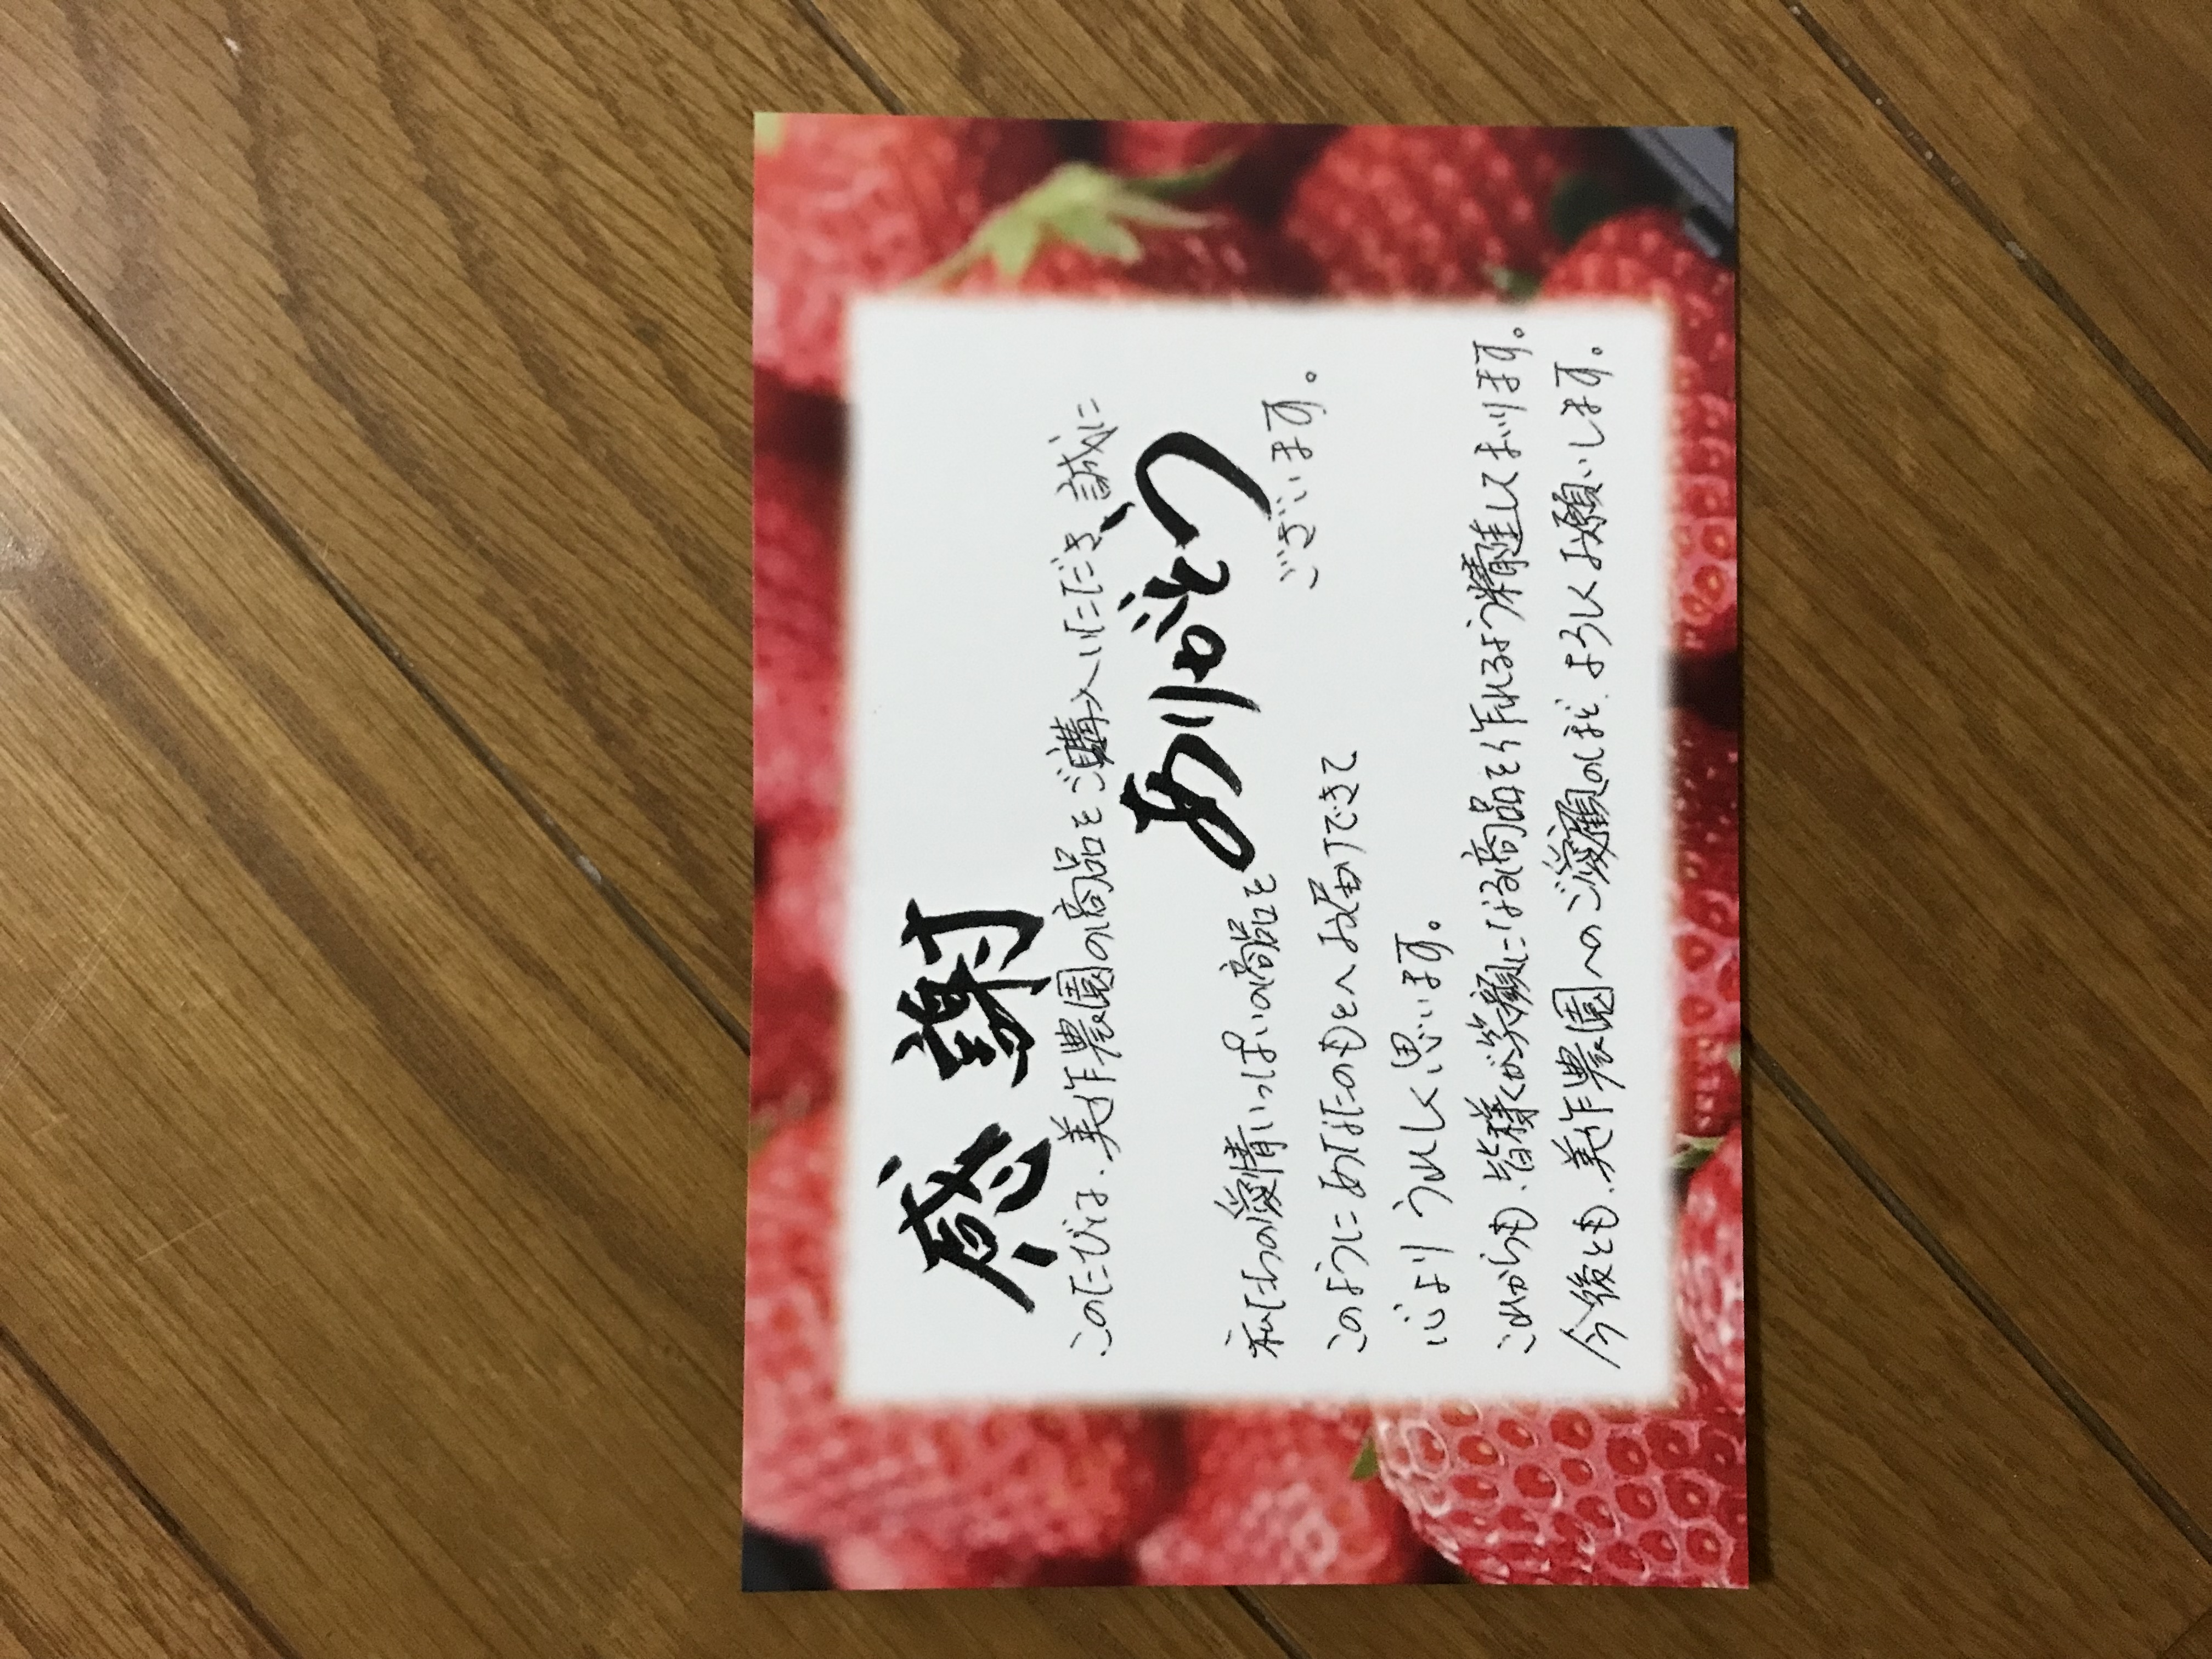 感謝
このたびは、美作農園の商品をご購入いただき、誠に
ありがとう
ございます。
私たちの愛情いっぱいの商品を
このようにあなたのもとへお届けできて
心よりうれしく思います。
これからも、皆様が笑顔になる商品を作れるよう精進してまいります。
今後とも、美作農園へのご愛顧のほど、よろしくお願いします。